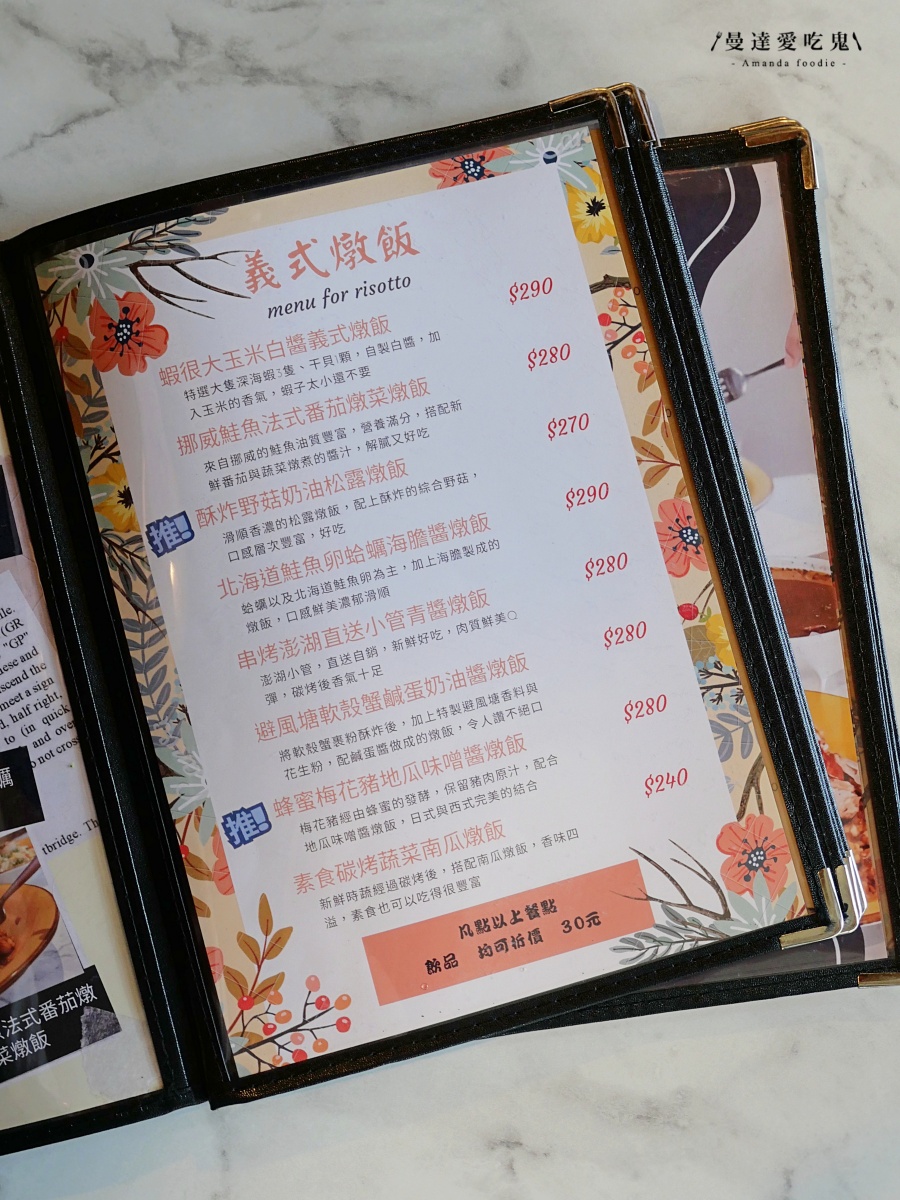 曼達愛吃鬼
- Amanda foodie -
義式燉飯
menu for risotto
蝦很大玉米白醬義式燉飯 $290
特選大隻深海蝦3隻、干貝1顆，自製白醬，加
入玉米的香氣，蝦子太小還不要
挪威鮭魚法式番茄燉菜燉飯 $280
來自挪威的鮭魚油質豐富，營養滿分，搭配新
鮮番茄與蔬菜燉煮的醬汁，解膩又好吃
推! 酥炸野菇奶油松露燉飯 $270
滑順香濃的松露燉飯，配上酥炸的綜合野菇，
口感層次豐富，好吃
北海道鮭魚卵蛤蠣海膽醬燉飯 $290
蛤蠣以及北海道鮭魚卵為主，加上海膽製成的
燉飯，口感鮮美濃郁滑順
串烤澎湖直送小管青醬燉飯 $280
澎湖小管，直送自銷，新鮮好吃，肉質鮮美Q
彈，碳烤後香氣十足
避風塘軟殼蟹鹹蛋奶油醬燉飯 $280
將軟殼蟹裹粉酥炸後，加上特製避風塘香料與
花生粉，配鹹蛋醬做成的燉飯，令人讚不絕口
推! 蜂蜜梅花豬地瓜味噌醬燉飯 $280
梅花豬經由蜂蜜的發酵，保留豬肉原汁，配合
地瓜味噌醬燉飯，日式與西式完美的結合
素食碳烤蔬菜南瓜燉飯 $240
新鮮時蔬經過碳烤後，搭配南瓜燉飯，香味四
溢，素食也可以吃得很豐富
凡點以上餐點
飲品 均可折價 30元
(GR
"GP"
nese and
scend the
meet a sign
d, half right,
to (in quick
and over
o not cross
tbridge. Th
蠣
法式番茄燉
菜燉飯